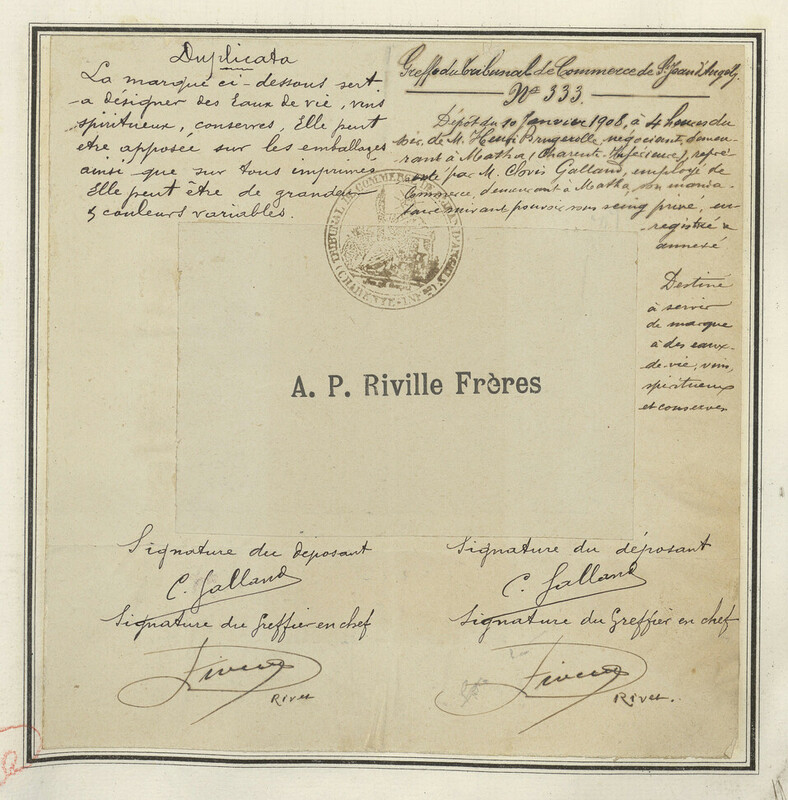 Duplicata
La marque ci-dessous sert
a désigner des Eaux de vie, vins
spiritueux, conserves, Elle peut
etre apposée sur les emballages
ainsi que sur tous imprimés
Elle peut être de grandeur
& couleurs variables.
Greffe du Tribunal de Commerce de St Jean d'Angély
No 333.
Dépôt du 10 Janvier 1908, à 4 heures du
soir, de M. Henri Brugerille négociant, demeu-
rant à Matha (Charente-Inférieure), repré-
senté par M. Clovis Galland, employé de
Commerce, demeurant à Matha, son manda-
taire suivant pouvoir sous seing privé, en-
registré &
annexé
Destiné
à servir
de marque
à des eaux-
de-vie, vins,
spiritueux
et conserves
TRIBUNAL DE COMMERCE DE ST JEAN D'ANGELY
(CHARENTE-INFRE)
A. P. Riville Frères
Signature du déposant
C. Galland
Signature du Greffier en chef
Rivet
Signature du déposant
C. Galland
Signature du Greffier en chef
Rivet.